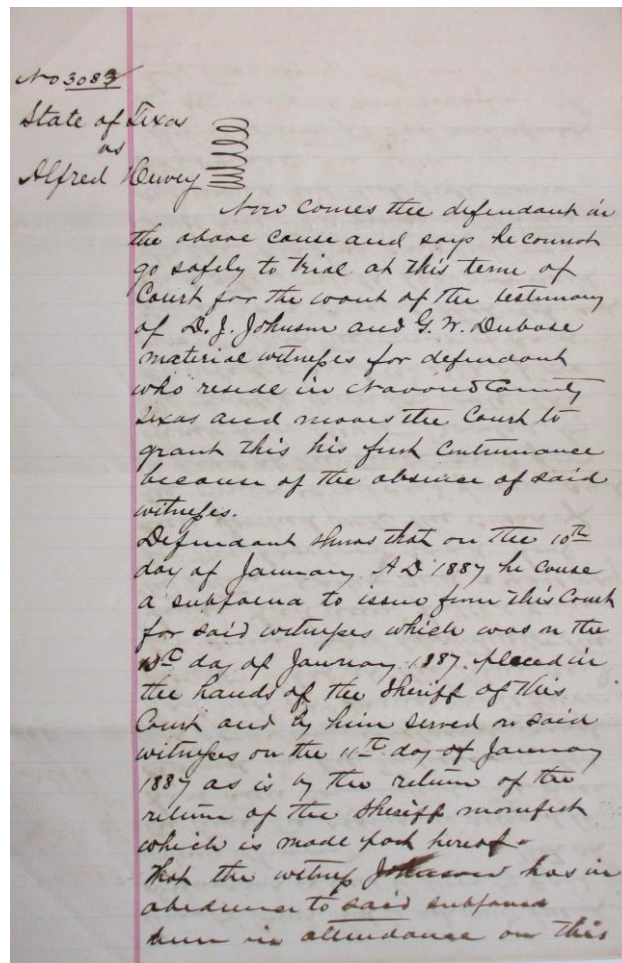 No 3083
State of Texas
vs
Alfred Hervey
Now comes the defendant in
the above cause and says he cannot
go safely to trial at this term of
Court for the want of the testimony
of D. J. Johnson and G. W. Dubose
material witnesses for defendant
who reside in County
Texas and moves the Court to
grant this his first Continuance
because of the absence of said
witnesses.
Defendant shows that on the 10th
day of January A D 1887 he cause
a subpoena to issue from this Court
for said witnesses which was on the
10th day of January 1887 placed in
the hands of the Sheriff of this
Court and by him served on said
witnesses on the 11th day of January
1887 as is by the return of the
return of the Sheriff manifest
which is made part hereof.
That the witness Johnson has in
obedience to said subpoena
been in attendance on this